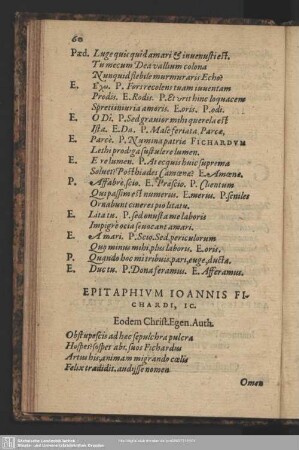 60
Pæd. Luge quicquid amari & inuenusti est.
Tu mecum Dea vallium colona
Nunquid flebile murmuraris Echo?
E. Ἔχω. P. Fors recolens tuam iuuentam
Prodis. E. Rodis. P. Et vrethinc loquacem
Spretioniuria amoris. E. oris. P. odi.
E. O Di. P. Sed grauior mihi querela est
Ista. E. Da. P. Male feriata, Parca,
E. Parcè. P. Numina patria FICHARDVM
Lethi prodiga sustulere lumen.
E. E re lumen. P. At ecquis huic suprema
Soluet? Posthiades Camœnæ? E. Amœne.
P. Affabrè scio. E. Præscio. P. Clientum
Qui passim est numerus. E. merus. P. seniles
Ornabunt cineres politatu.
E. Litatu. P. sed onusta me laboris
Impigrè ocia seuocant amari.
E. Amari. P. Scio. Sed periculorum
Quo minus mihi plus laboris. E. oris.
P. Quando hoc mi tribuis, pari, euge, ducta.
E. Ductu. P. Dona feramus. E. Afferamus.
EPITAPHIVM IOANNIS FI-
CHARDI, IC.
Eodem Christ. Egen. Auth.
Obstupescis ad hæc sepulchra pulcra
Hospes? sospes abr. suos Fichardus
Artus his, animam migrando cœlis
Felix tradidit. audysse nomen
Omen